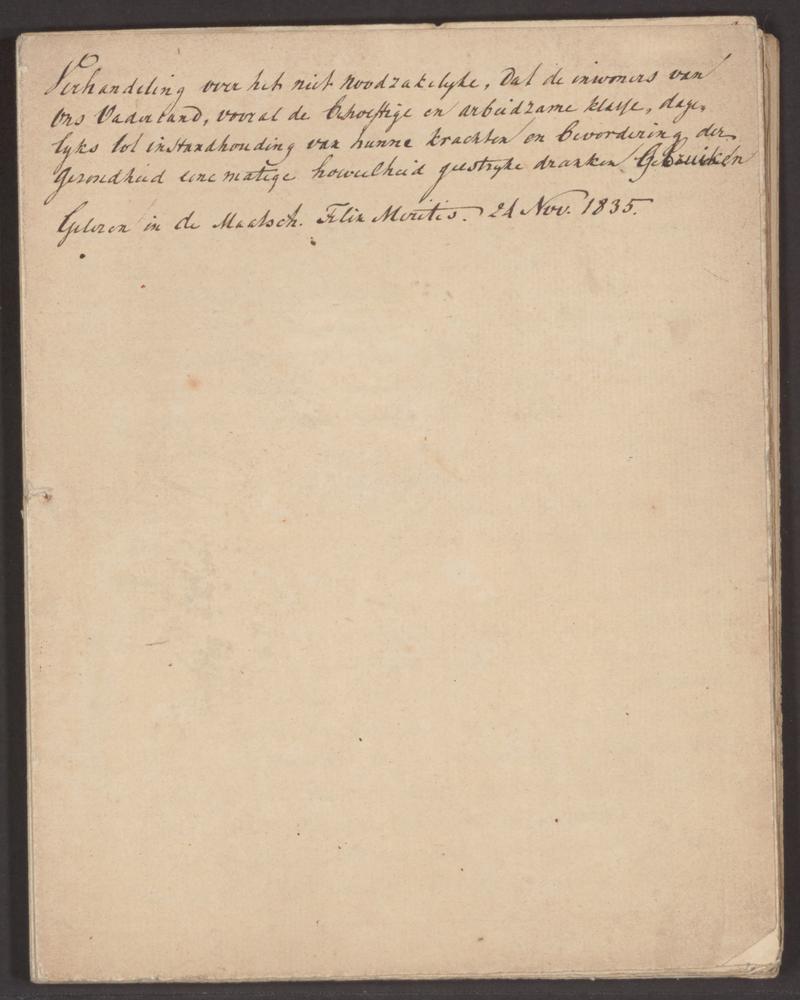 Verhandeling over het niet noodzakelyke, dat de inwoners van
ons Vaderland, vooral de behoeftige en arbeidzame klasse, dage,
lyks tot instandhouding van hunne krachten en bevordering der
gezondheid eene matige hoeveelheid geestryke dranken Gebruiken
Gelezen in de Maatsch. Felix Meritis. 24 Nov. 1835.